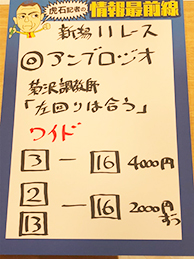 虎石記者の
情報最前線
新潟11レース
◎アンブロジオ
菊沢調教師
「左回りは合う」
ワイド
3 ― 16 4000円
2
13 ― 16 2000円ずつ